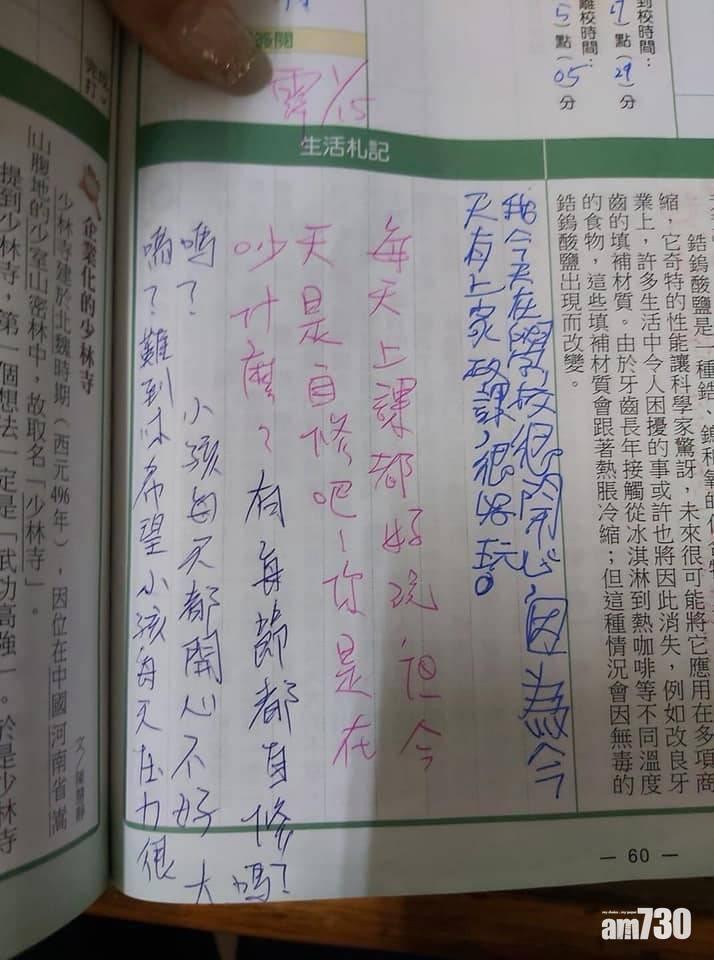 到校時間：
(7) 點 (29) 分
離校時間：
(5) 點 (05) 分
簽閱
1/15
生活札記
鋯鎢酸鹽是一種鋯、鎢和氧的
縮，它奇特的性能讓科學家驚訝，未來很可能將它應用在多項商
業上，許多生活中令人困擾的事或許也將因此消失，例如改良牙
齒的填補材質。由於牙齒長年接觸從冰淇淋到熱咖啡等不同溫度
的食物，這些填補材質會跟著熱脹冷縮；但這種情況會因無毒的
鋯鎢酸鹽出現而改變。
我今天在學校很開心，因為今
天有上家政課，很好玩。
每天上課都好玩但今
天是自修吧！你是在
吵什麼？有每節都自修嗎？
嗎？ 小孩每天都開心不好
嗎？難到你希望小孩每天在力很
大
— 60 —
完成
打✓
企業化的少林寺
文／陳慧靜
少林寺建於北魏時期（西元496年），因位在中國河南省嵩
山腹地的少室山密林中，故取名「少林寺」。
提到少林寺，第一個想法一定是「武功高強」。於是少林寺
my choice．my paper
am730